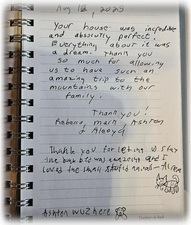 Your house was incredible
and absolutely perfect.
Everything about it was
a dream. Thank you
so much for allowing
us to have such an
amazing trip to the
mountains with our
family.
Thank you!
Ashton
Thank you for letting us stay
the was amazing and I
loved the
Ashton wuz here